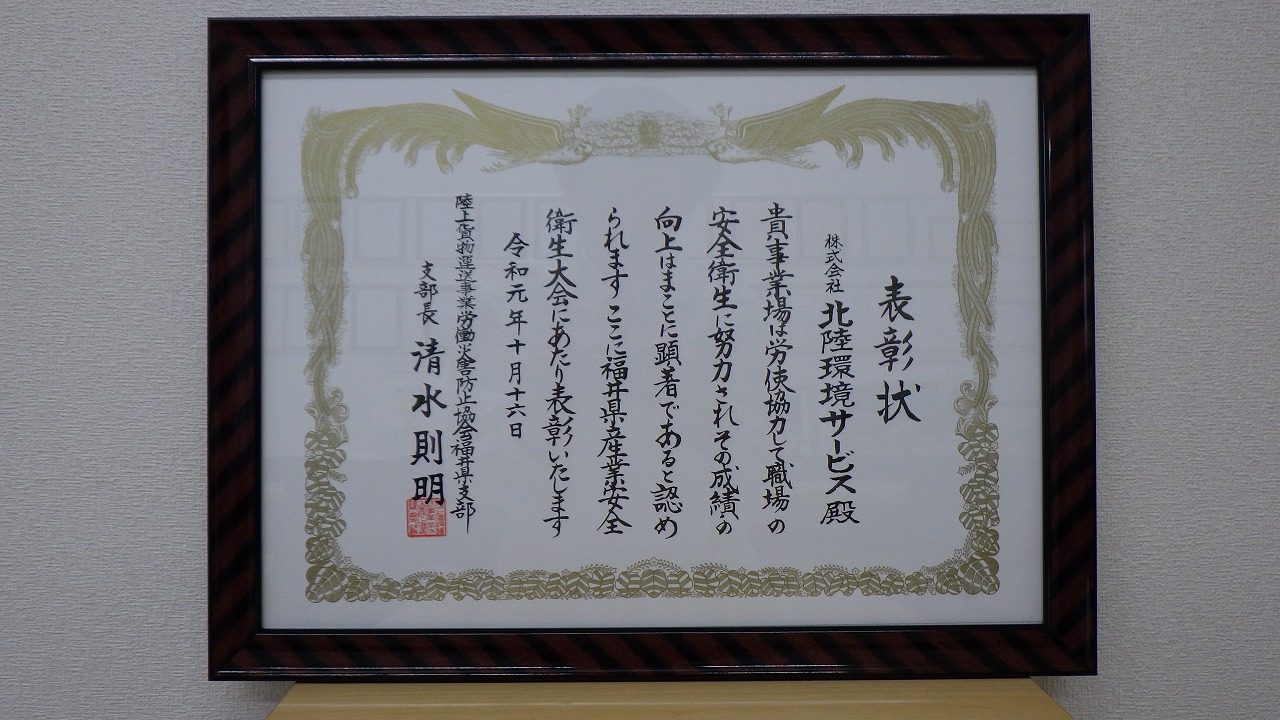 表彰状
株式会社 北陸環境サービス 殿
貴事業場は労使協力して職場の
安全衛生に努力されその成績の
向上はまことに顕著であると認め
られます ここに福井県産業安全
衛生大会にあたり表彰いたします
令和元年十月十六日
陸上貨物運送事業労働災害防止協会福井県支部
支部長 清水則明